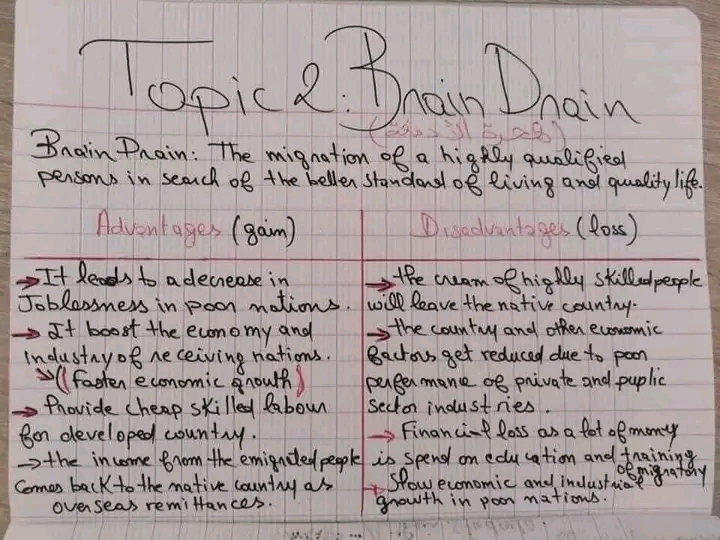 Topic 2: Brain Drain
(هجرة الأدمغة)
Brain Drain: The migration of a highly qualified
persons in search of the better standard of living and quality life.
Advantages (gain)
→ It leads to a decrease in
Joblessness in poor nations.
→ It boost the economy and
industry of receiving nations.
↳ (faster economic growth)
→ Provide cheap skilled labour
for developed country.
→ the income from the emigrated people
comes back to the native country as
overseas remittances.
Disadvantages (loss)
→ the cream of highly skilled people
will leave the native country.
→ the country and other economic
factors get reduced due to poor
performane of private and puplic
sector industries.
→ Financial loss as a lot of money
is spend on education and training
of migratory
→ Slow economic and industrial
growth in poor nations.